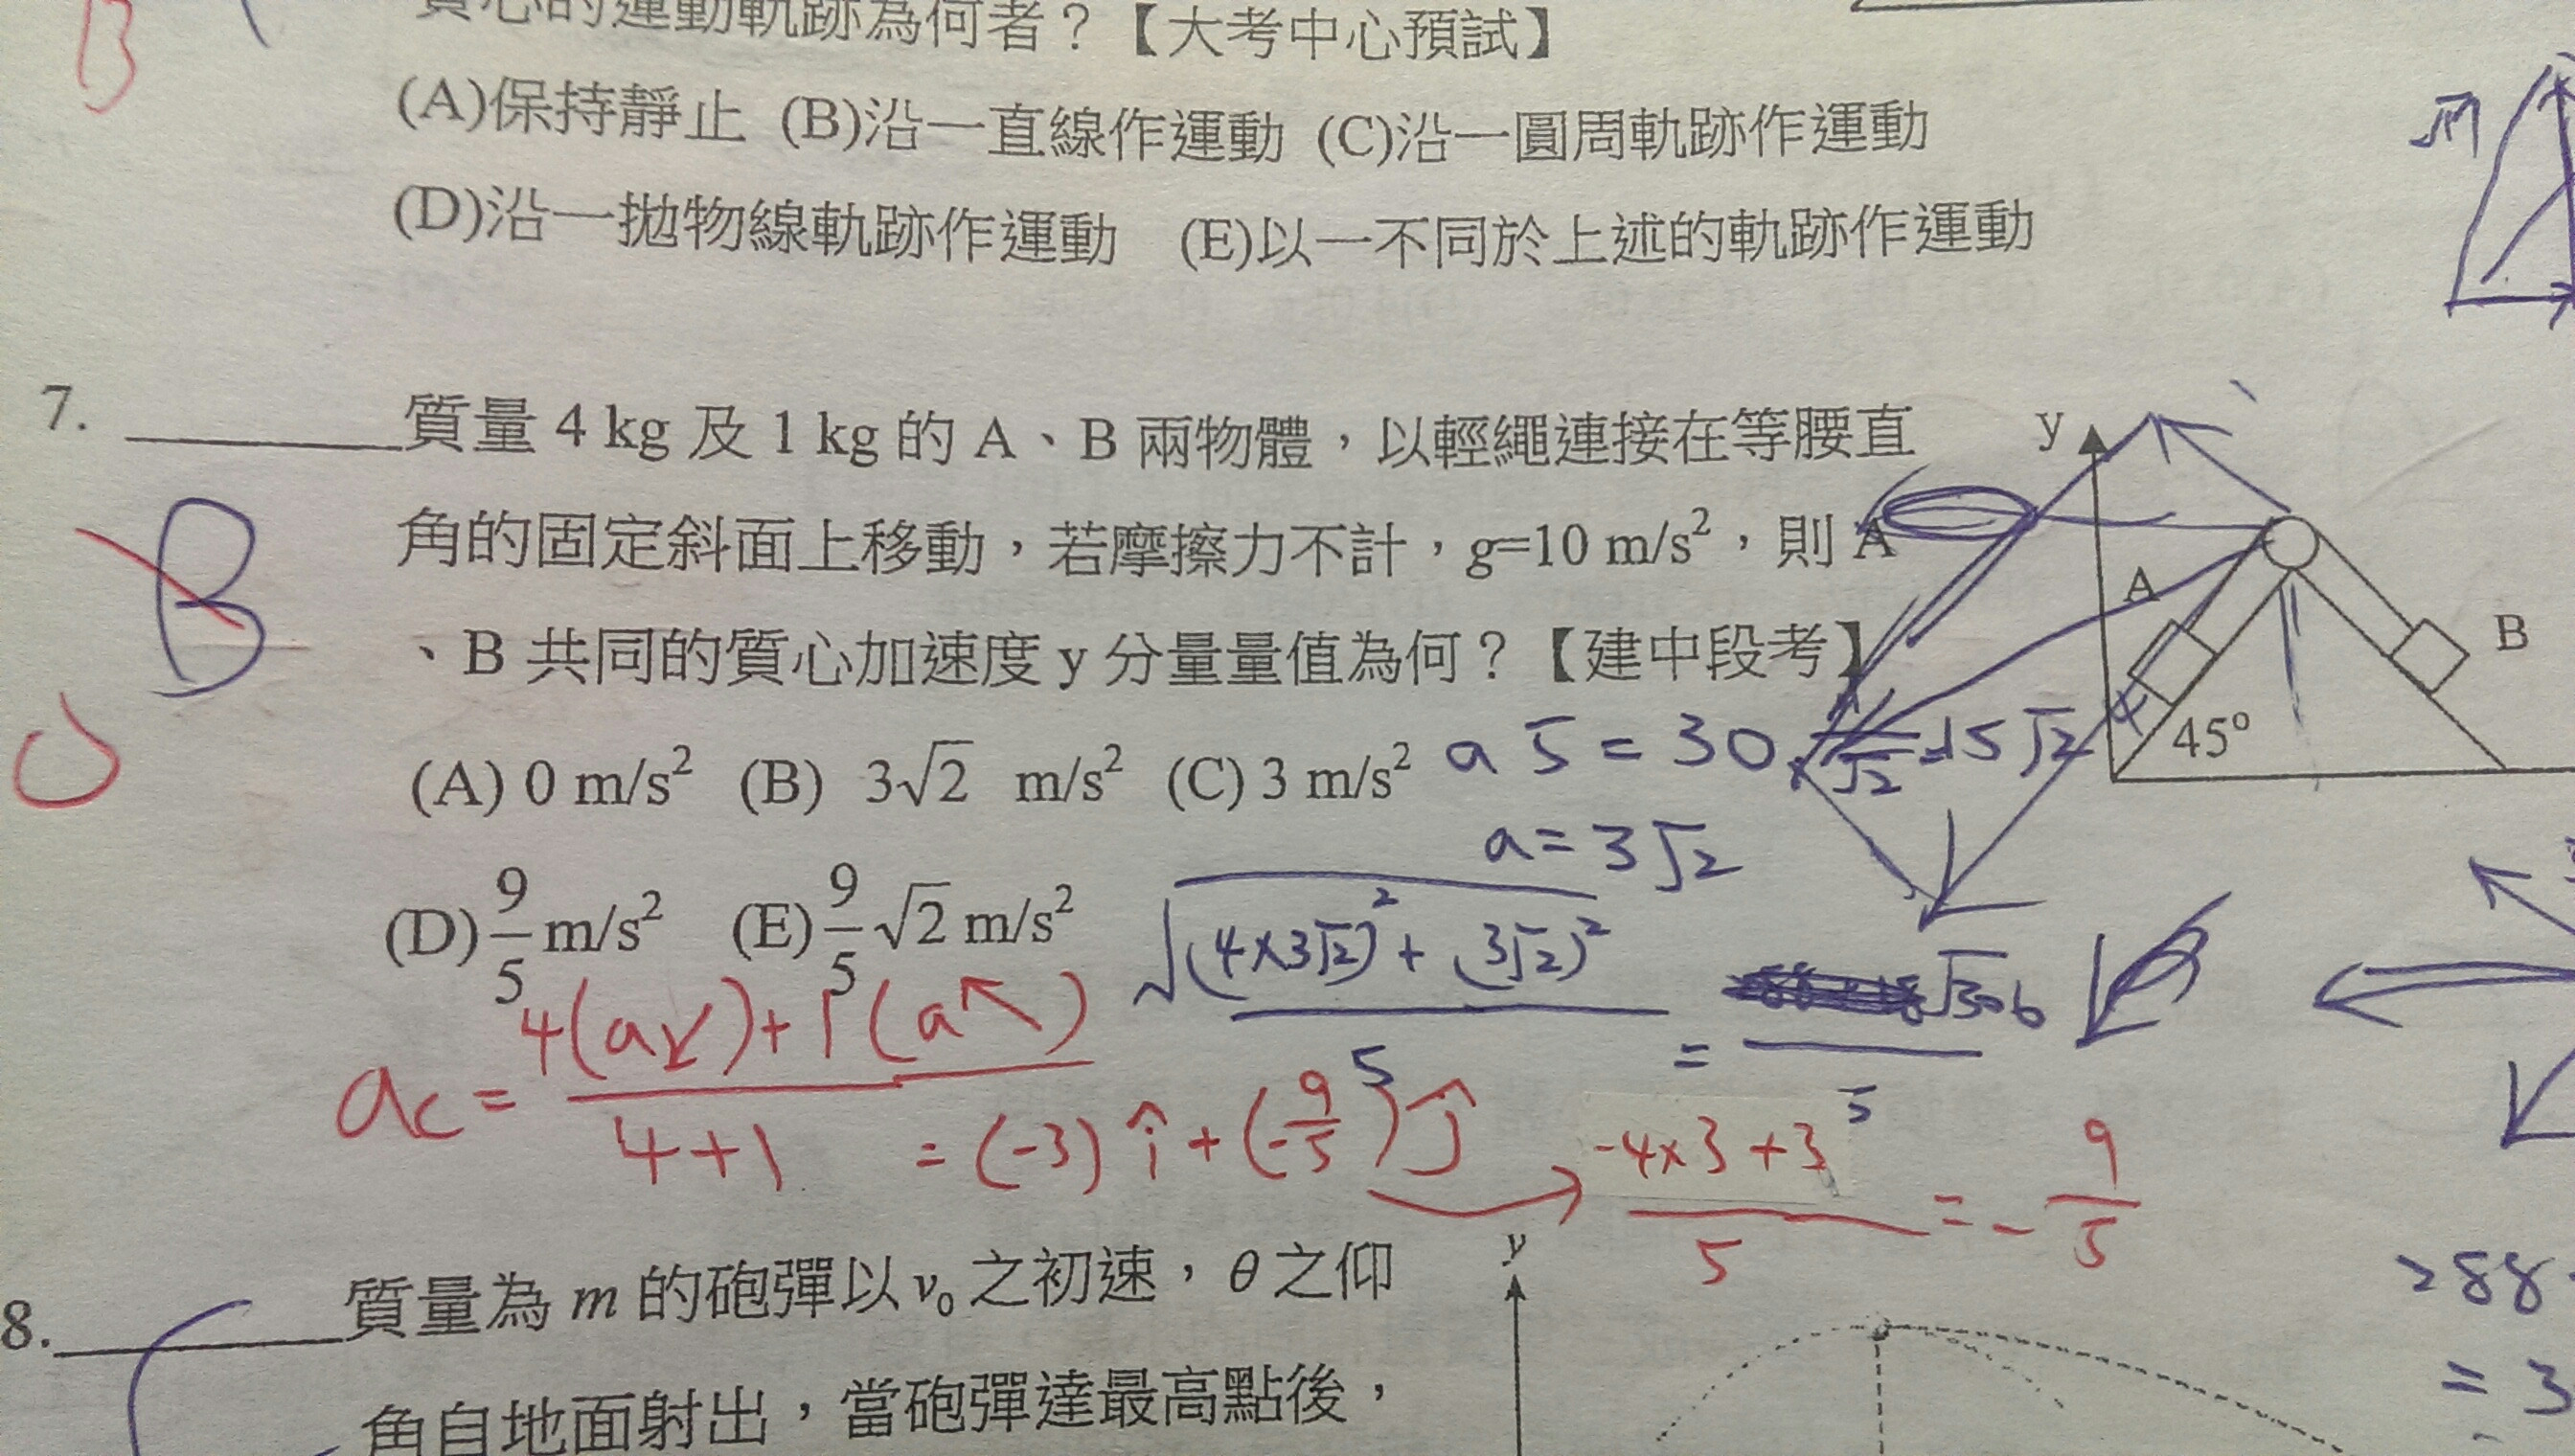 質心的運動軌跡為何者？【大考中心預試】
B
(A)保持靜止 (B)沿一直線作運動 (C)沿一圓周軌跡作運動
(D)沿一拋物線軌跡作運動 (E)以一不同於上述的軌跡作運動
7. 質量 4 kg 及 1 kg 的 A、B 兩物體，以輕繩連接在等腰直
角的固定斜面上移動，若摩擦力不計，g=10 m/s²，則 A
、B 共同的質心加速度 y 分量量值為何？【建中段考】
B
y
A
B
45°
(A) 0 m/s² (B) 3√2 m/s² (C) 3 m/s²
(D) 9/5 m/s² (E) 9/5 √2 m/s²
a = 3√2
√((4×3√2)² + (3√2)²)
5
= √306
5
4(a↙)+1(a↖)
ac =
4+1
= (-3)î + (-9/5)ĵ
-4×3+3
5
= -9/5
8. 質量為 m 的砲彈以 v₀ 之初速，θ 之仰
y
角自地面射出，當砲彈達最高點後，
288
= 3